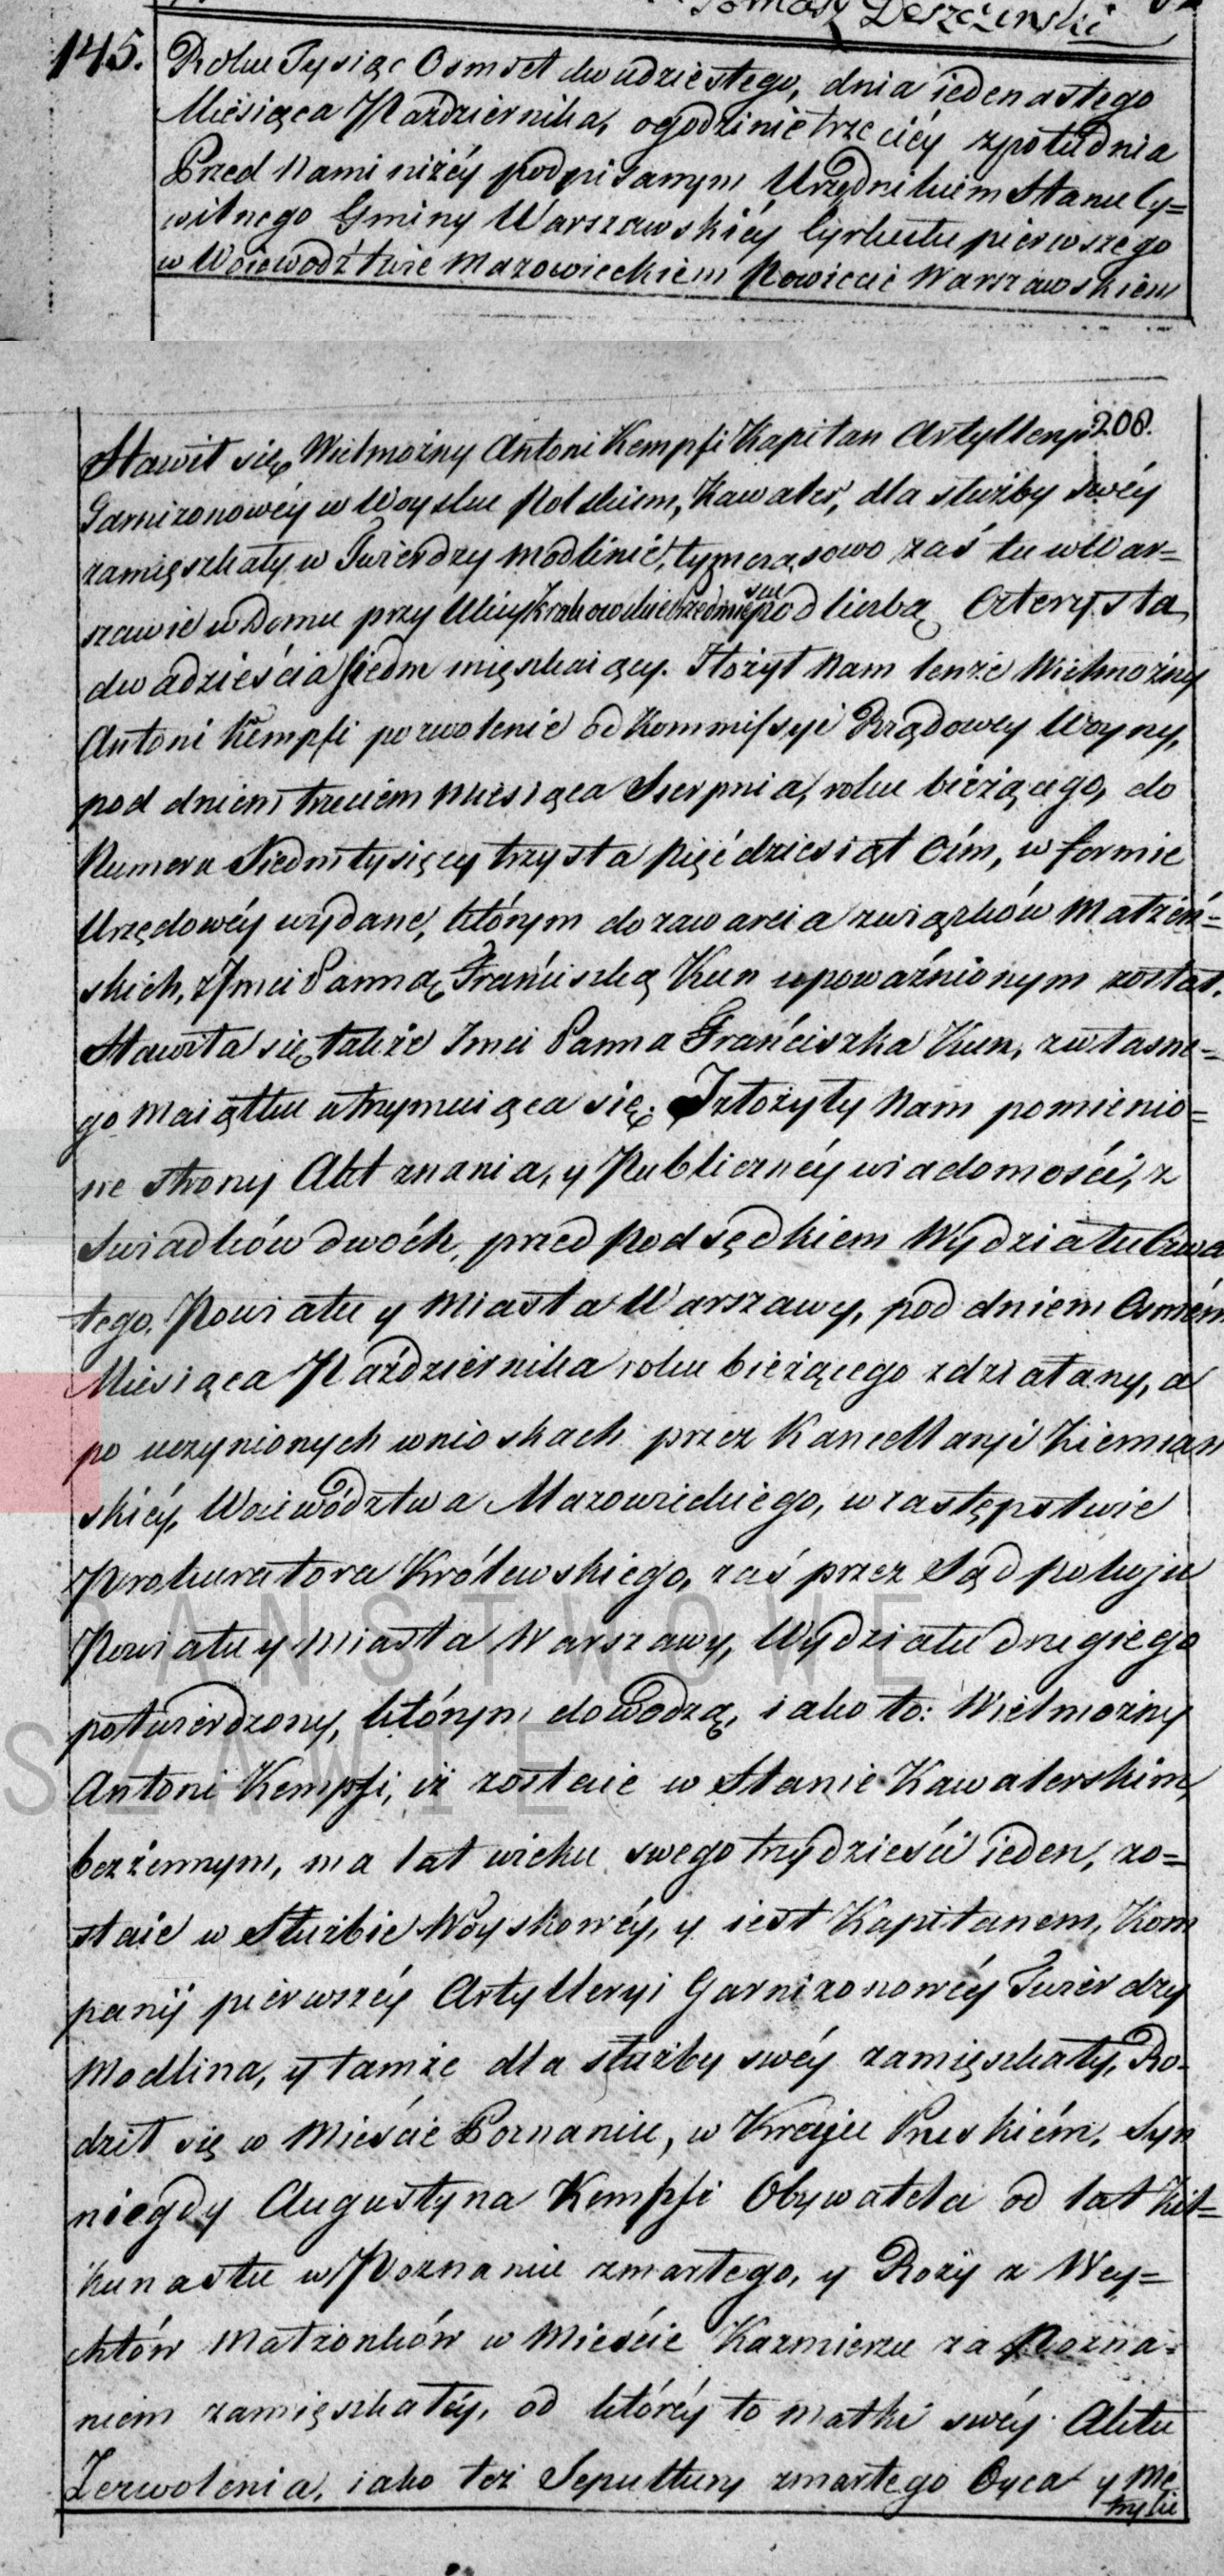 Tomasz Deszczyński
145.
Roku Tysiąc Osmset dwudziestego, dnia iedenastego
Miesiąca Października, ogodzinie trzeciéy zpołudnia
Przed Nami niżéy podpisanym Urzędnikiem Stanu Cy=
wilnego Gminy Warszawskiéy Cyrkułu pierwszego
w Woiewództwie Mazowieckiem Powiecie Warszawskiem
208.
Stawił się Wielmożny Antoni Kempfi Kapitan Artylleryi
Garnizonowéy w Woysku Polskiem, Kawaler, dla służby swéy
zamięszkały w Twierdzy Modlinie, tymczasowo zaś tu w War=
szawie w Domu przy Ulicy Krakowskie Przedmieściu pod liczbą Czterysta
dwadzieścia siedm mięszkaiący. Złożył Nam tenże Wielmożny
Antoni Kempfi pozwolenie od Kommissyi Rządowey Woyny,
pod dniem trzeciem Miesiąca Sierpnia, roku bieżącego, do
Numeru Siedmtysięcy trzysta pięćdziesiąt óśm, w formie
Urzędowéy wydane, którym do zawarcia związków Małżeń=
skich, z Jmci Panną Franciszką Kun upoważnionym został.
Stawiła się także Jmci Panna Franciszka Kun, z własne=
go Maiątku utrzymuiąca się. Jzłożyły Nam pomienio=
ne Strony Akt znania, y Publicznéy wiadomości, z
Swiadków dwóch, przed Podsędkiem Wydziału Czwar
tego, Powiatu y Miasta Warszawy, pod dniem Osmém
Miesiąca Października roku bieżącego zdziałany, a
po uczynionych wnioskach przez Kancellaryi Ziemiań
skiéy, Woiewództwa Mazowieckiego, w zastępstwie
Prokuratora Królewskiego, zaś przez Sąd pokoju
Powiatu y Miasta Warszawy, Wydziału drugiego
potwierdzony, którym dowodzą, iako to: Wielmożny
Antoni Kempfi, iż zostaie w Stanie Kawalerskim,
bezżennym, ma lat wieku swego trzydzieści ieden, zo=
staie w Służbie Woyskowéy, y iest Kapitanem, Kom
panij pierwszéy Artylleryi Garnizonowéy Twierdzy
Modlina, y tamże dla służby swéy zamięszkały, Ro=
dził się w Mieście Poznaniu, w Kraju Pruskiém, Syn
niegdy Augustyna Kempfi Obywatela od lat kil=
kunastu w Poznaniu zmarłego, y Róży z Wey=
chtów Małżonków w Mieście Kazmierzu za Pozna=
niem zamięszkałéy, od któréy to Matki swéy Aktu
Zezwolenia, iako też Sepultury zmarłego Oyca y Me
tryki
PAŃSTWOWE
SZAWIE